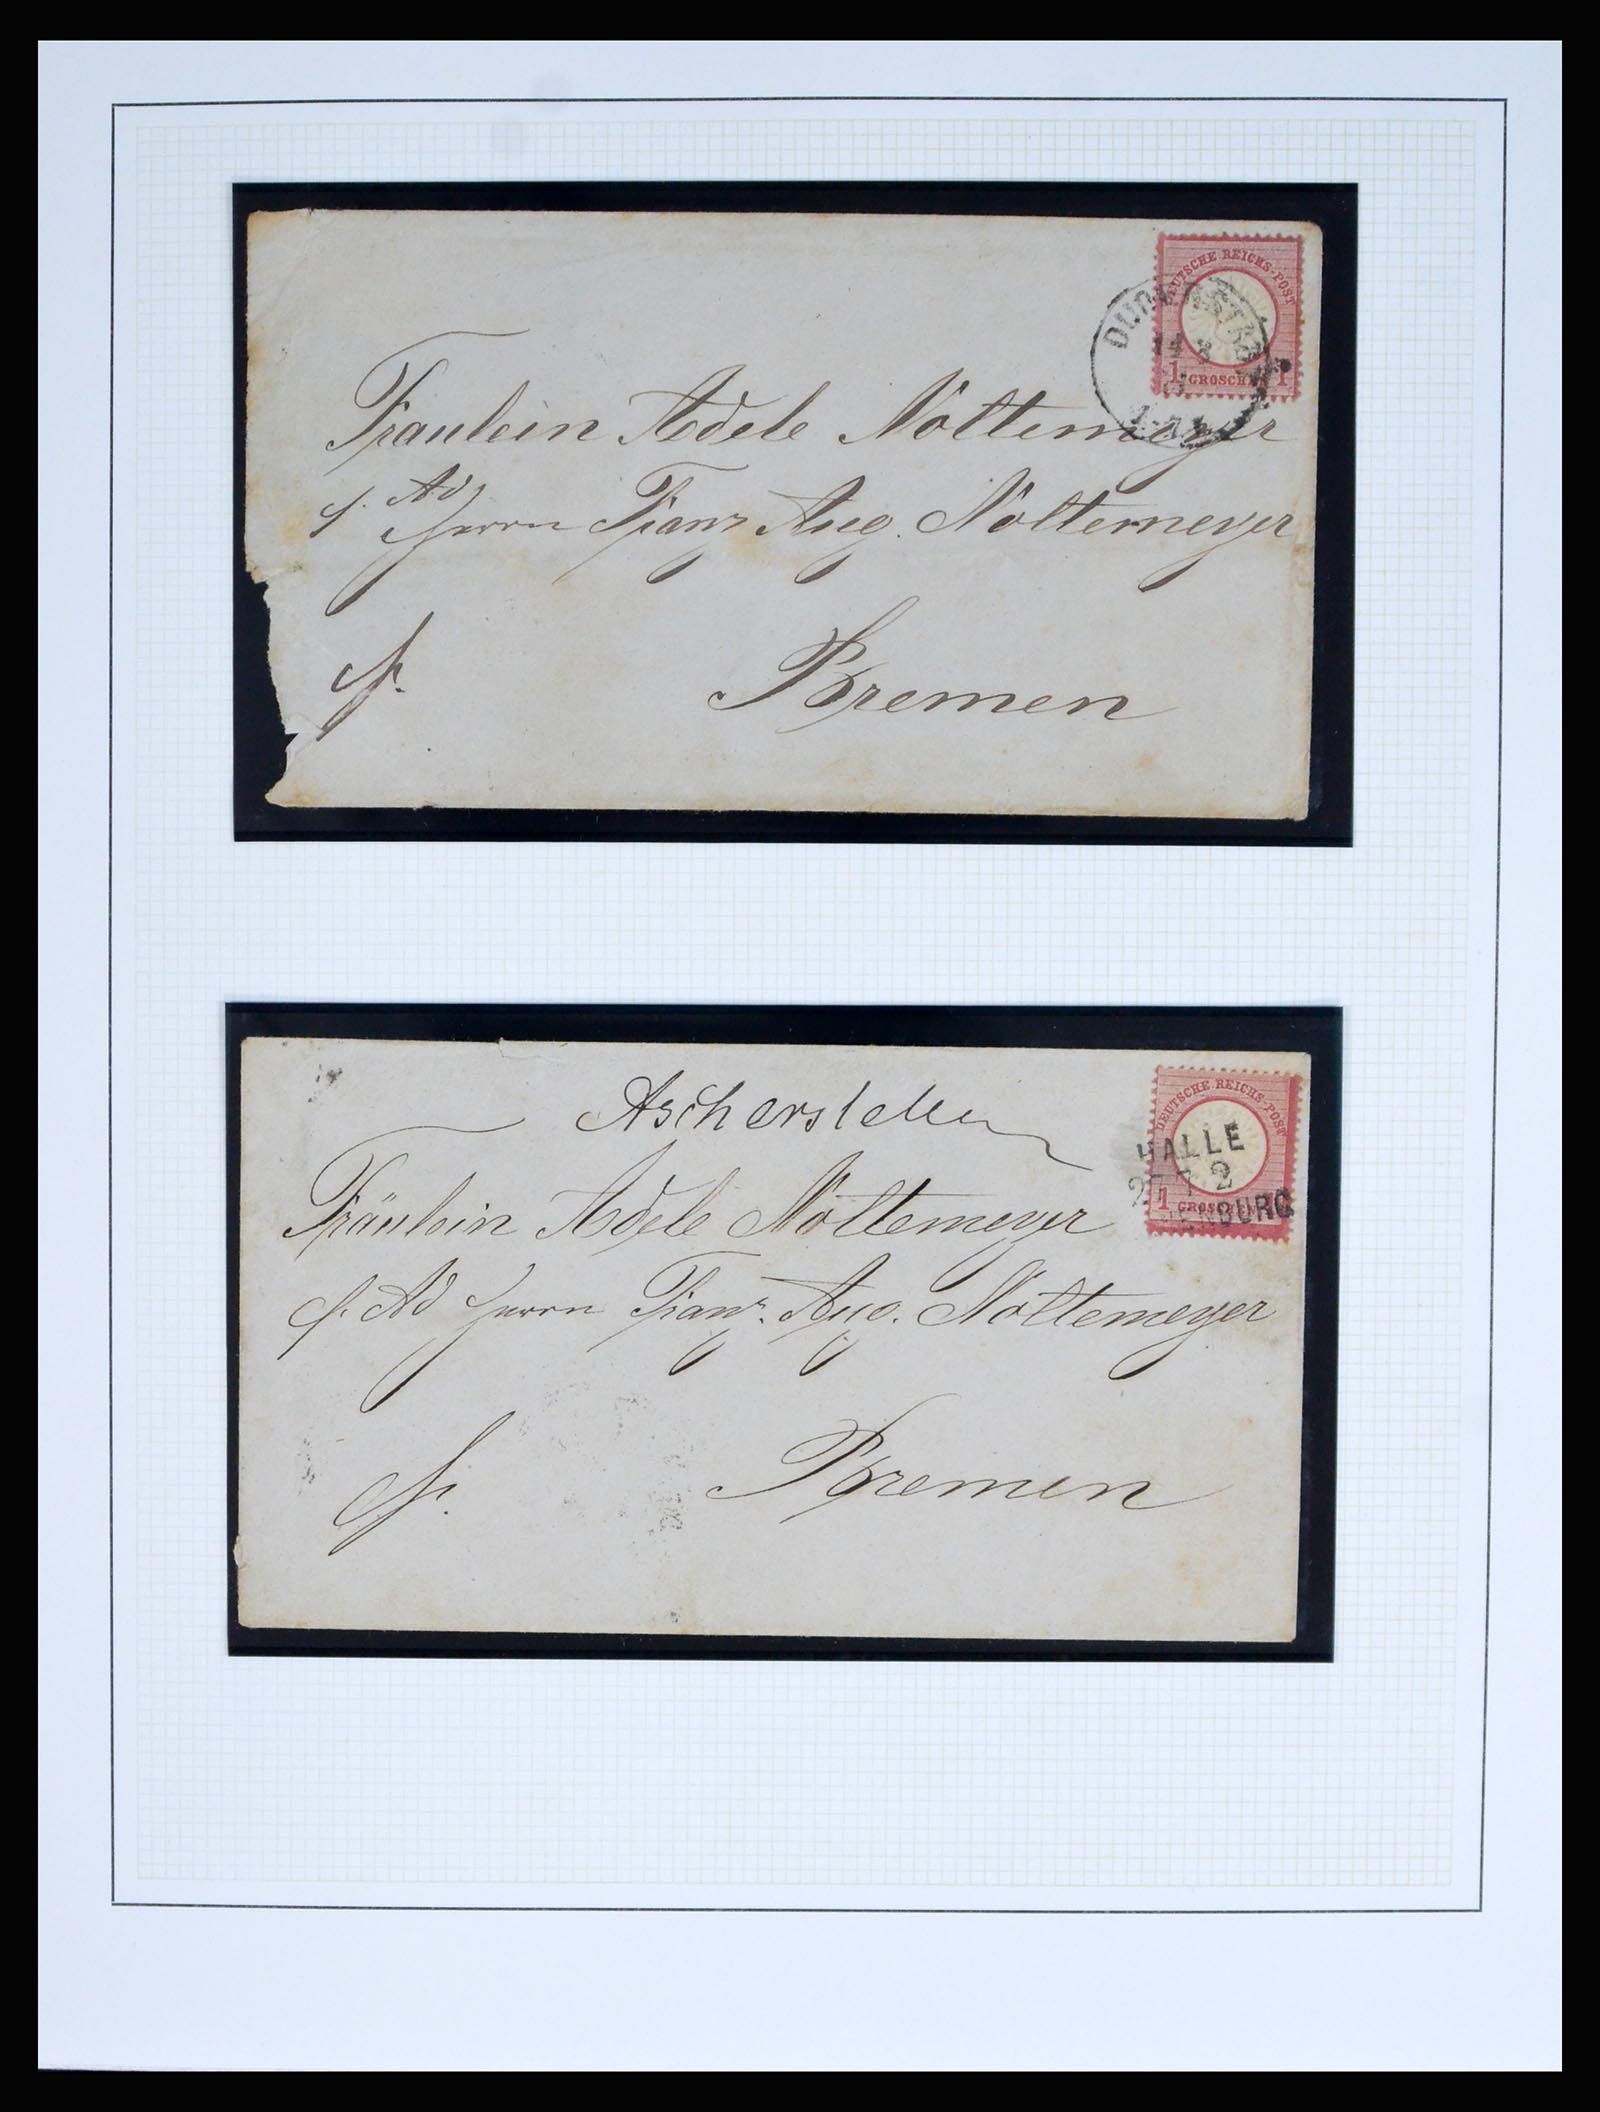 DEUTSCHE REICHS-POST
1 GROSCHEN 1
Fraulein Adele Noltemeyer
p. Ad
Herrn Franz Aug. Noltemeyer
fr. Bremen
Aschersleben
DEUTSCHE REICHS-POST
HALLE
2
1 GROSCHEN
ENBURG
Fräulein Adele Noltemeyer
p. Ad Herrn Franz. Aug. Noltemeyer
fr. Bremen